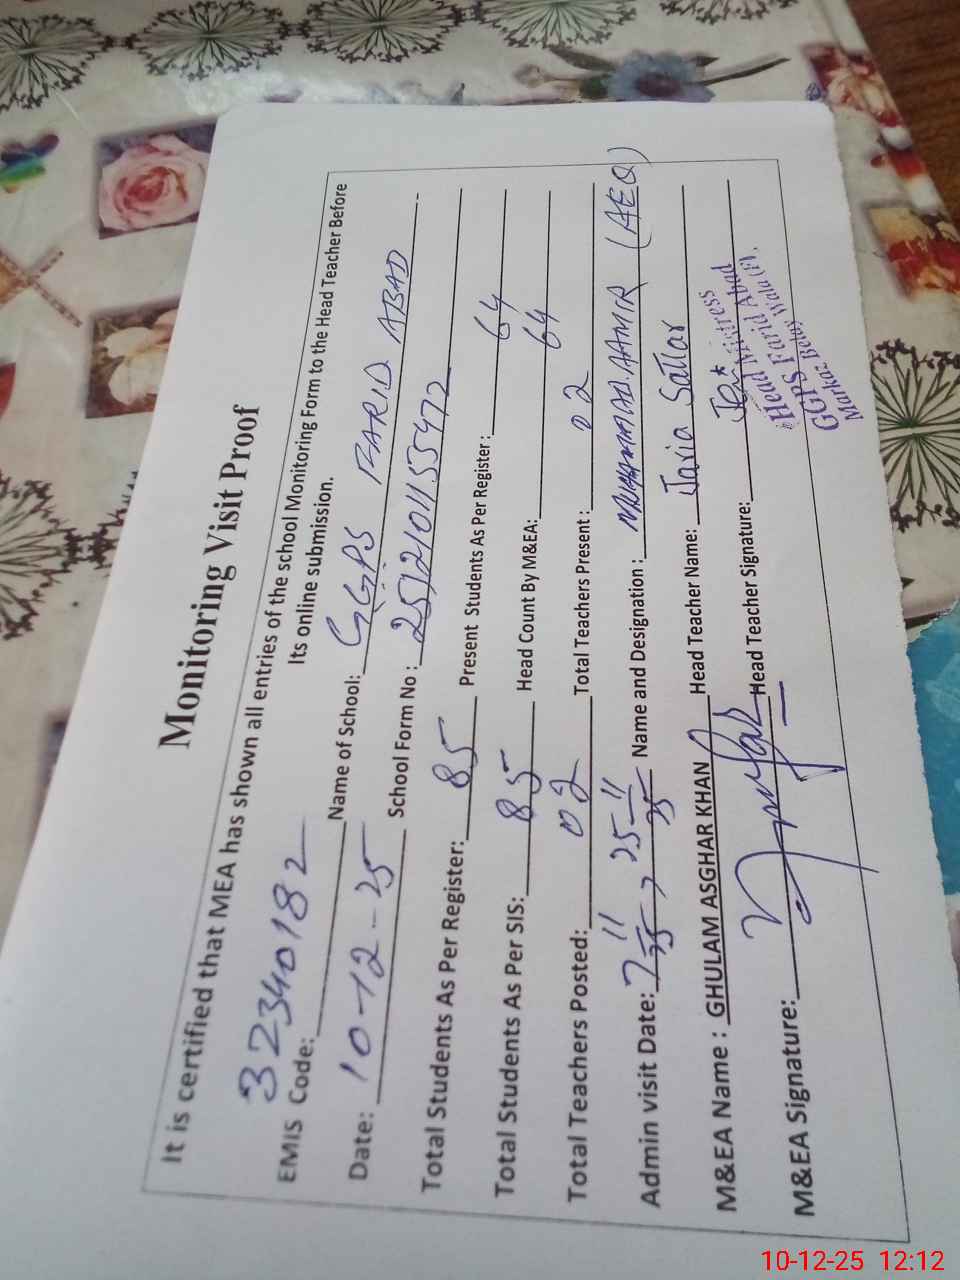 Monitoring Visit Proof
It is certified that MEA has shown all entries of the school Monitoring Form to the Head Teacher Before
Its online submission.
EMIS Code: 32340182 Name of School: GGPS FARID ABAD
Date: 10-12-25 School Form No : 251210115547
Total Students As Per Register: 85 Present Students As Per Register: 64
Total Students As Per SIS: 85 Head Count By M&EA: 64
Total Teachers Posted: 02 Total Teachers Present: 02
Admin visit Date: 7 11 25 , 25 11 25 Name and Designation : MUHAMMAD AAMIR (AEO)
M&EA Name : GHULAM ASGHAR KHAN Head Teacher Name: Javia Sattar
M&EA Signature: Head Teacher Signature:
Head Mistress
GGPS Farid Abad
Markaz Wala (F).
10-12-25 12:12